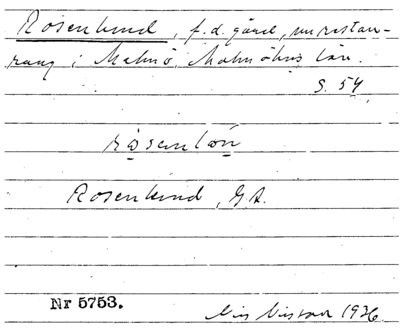 Rosenlund, f.d. gård, nu restau-
rang i Malmö, Malmöhus län.
S. 54
ròsenlön
Rosenlund, G A.
Nr 5753.
1926